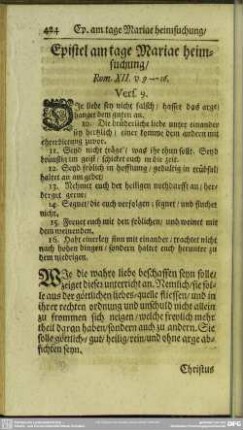 424 Ep. am tage Mariae heimsuchung/
Epistel am tage Mariae heim-
suchung/
Rom. XII. v. 9—16.
Vers. 9.
Die liebe sey nicht falsch/ hasset das arge/
hanget dem guten an.
10. Die brüderliche liebe unter einander
sey hertzlich/ einer komme dem andern mit
ehrerbietung zuvor.
11. Seyd nicht träge/ was ihr thun sollt. Seyd
brünstig im geist/ schicket euch in die zeit.
12. Seyd frölich in hoffnung/ gedultig in trübsal/
haltet an am gebet/
13. Nehmet euch der heiligen nothdurfft an/ her-
berget gerne.
14. Segnet/ die euch verfolgen: segnet/ und fluchet
nicht.
15. Freuet euch mit den frölichen/ und weinet mit
den weinenden.
16. Habt einerley sinn mit einander/ trachtet nicht
nach hohen dingen/ sondern haltet euch herunter zu
den niedrigen.
Wie die wahre liebe beschaffen seyn solle/
zeiget dieser unterricht an. Nemlich/ sie sol-
le aus der göttlichen liebes-quelle fliessen/ und in
ihrer rechten ordnung und unschuld nicht allein
zu frommen sich neigen/ welche freylich mehr
theil daran haben/ sondern auch zu andern. Sie
solle göttlich-gut/ heilig/ rein/ und ohne arge ab-
sichten seyn.
Christus